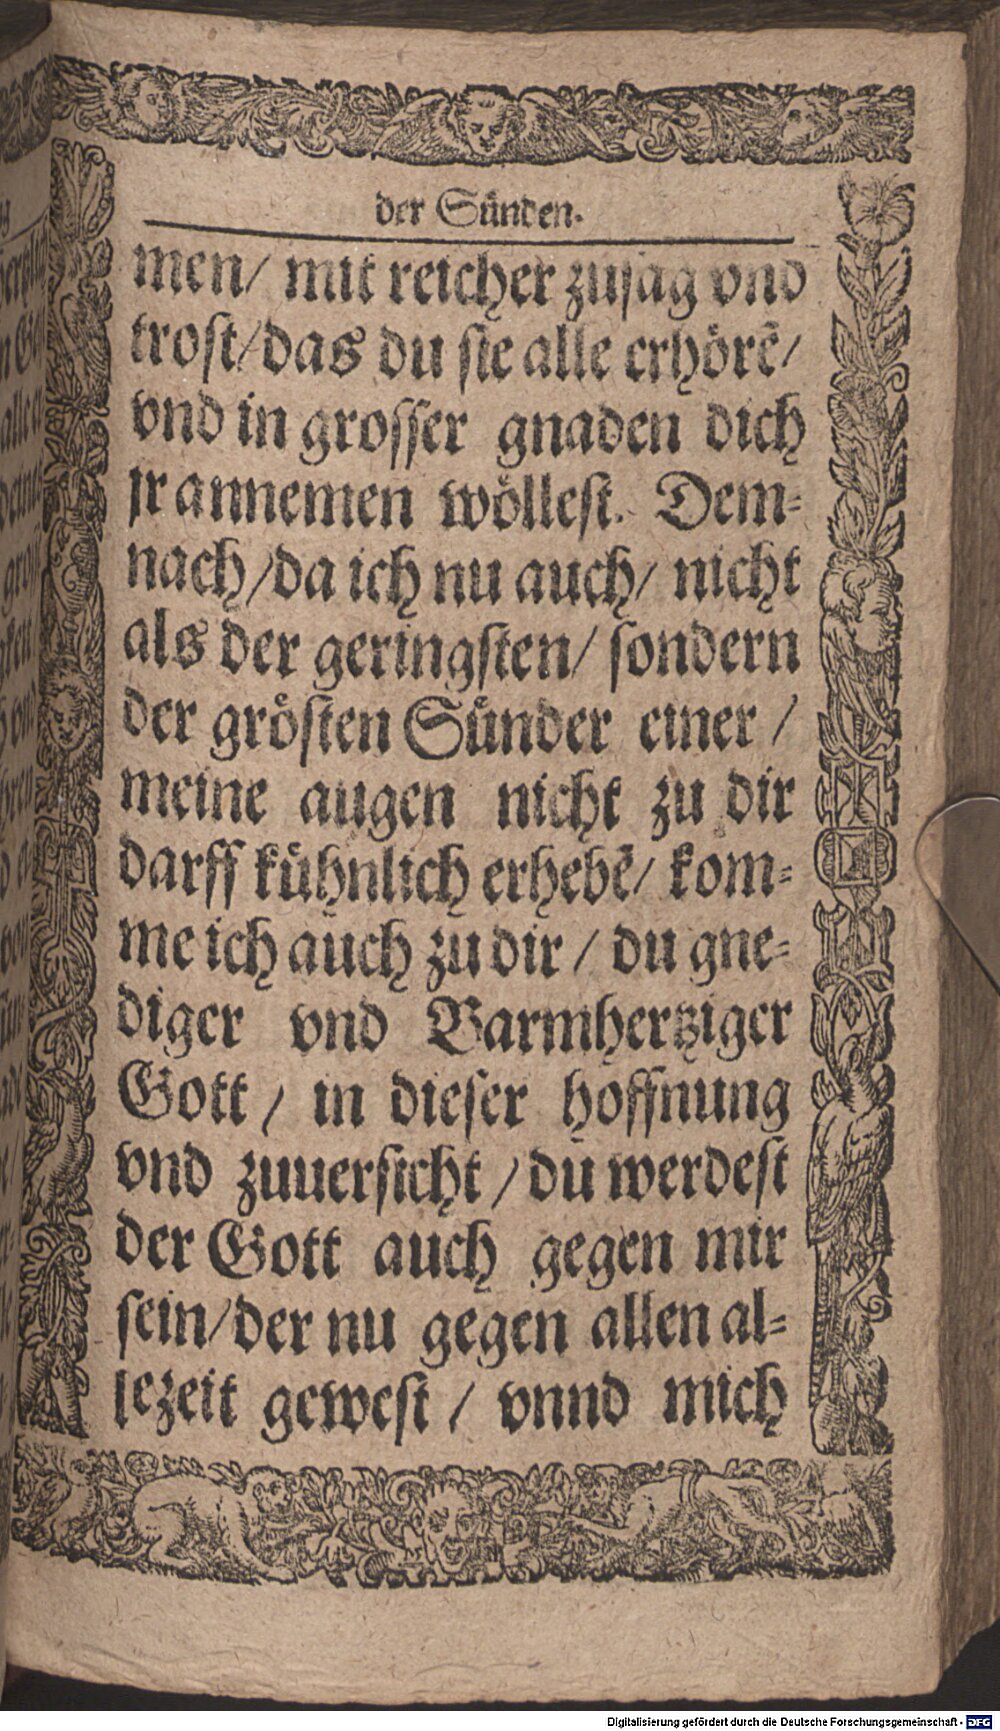 der Sünden.
men/ mit reicher zusag vnd
trost/das du sie alle erhörẽ/
vnd in grosser gnaden dich
jr annemen wöllest. Dem-
nach/da ich nu auch/ nicht
als der geringsten/ sondern
der grösten Sünder einer /
meine augen nicht zu dir
darff kühnlich erhebẽ/ kom-
me ich auch zu dir / du gne-
diger vnd Barmhertziger
Gott / in dieser hoffnung
vnd zuuersicht / du werdest
der Gott auch gegen mir
sein/der nu gegen allen al-
lezeit gewest / vnnd mich
Digitalisierung gefördert durch die Deutsche Forschungsgemeinschaft - DFG